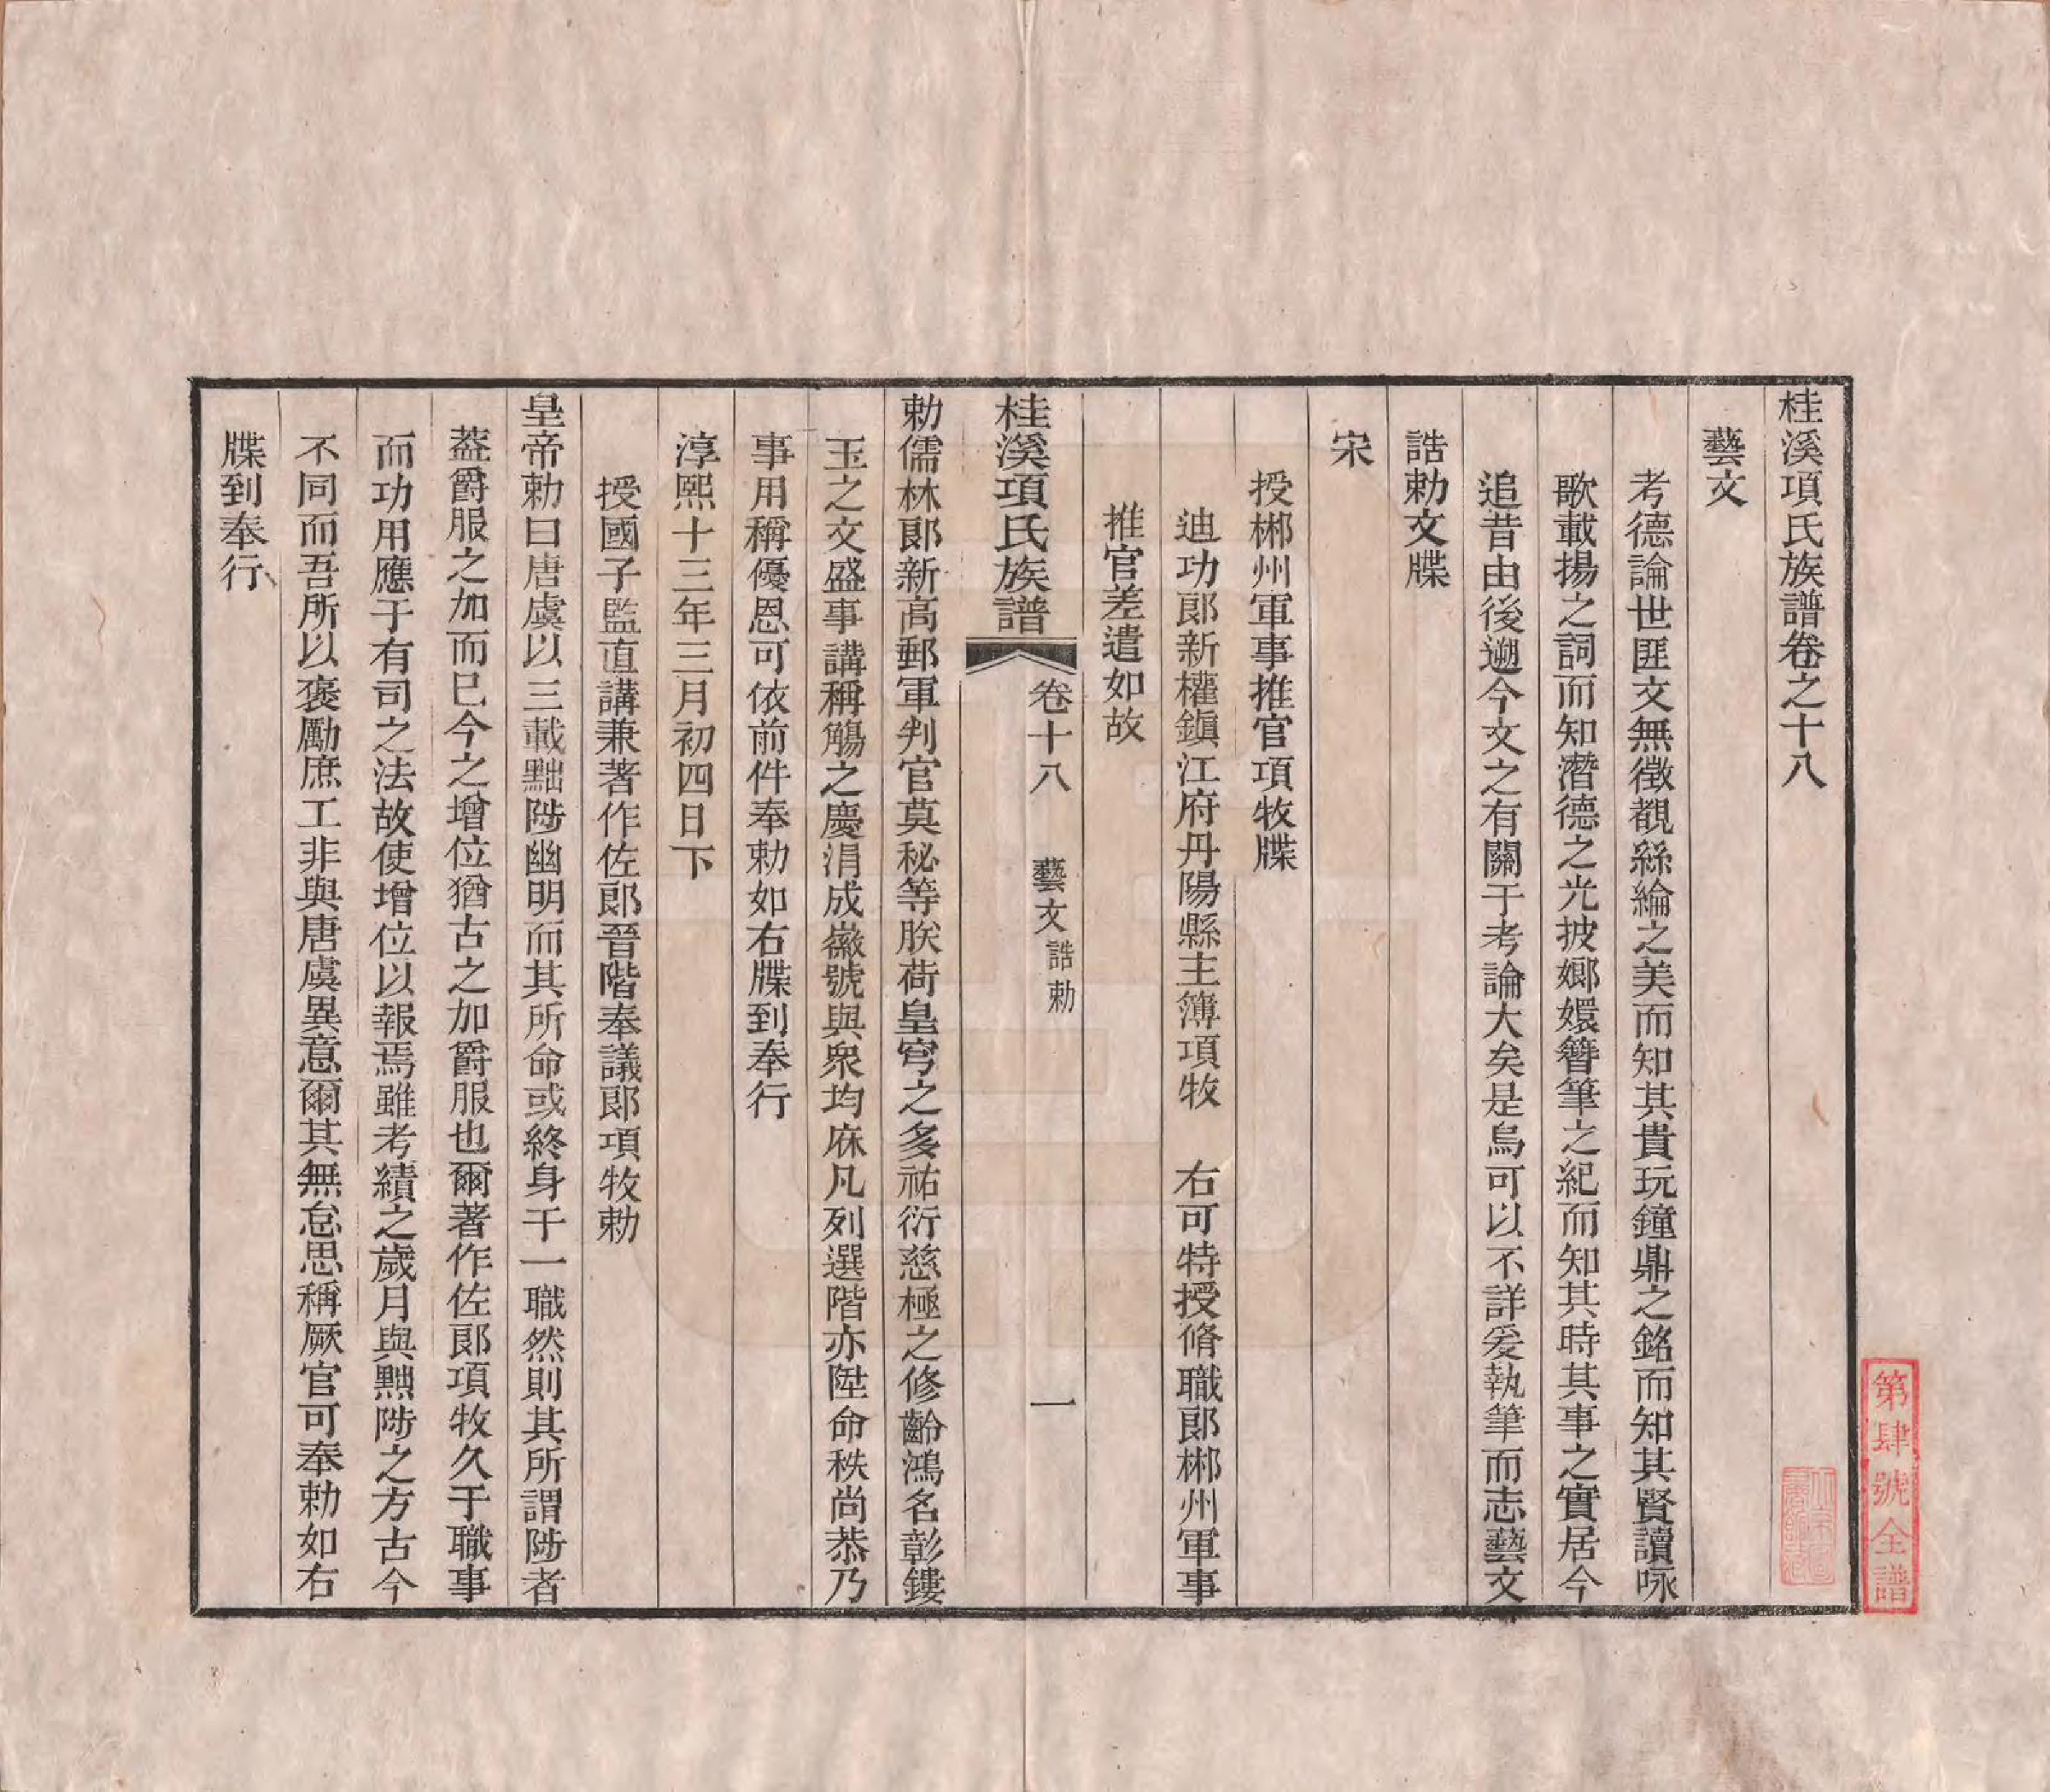 桂溪項氏族譜卷之十八
藝文
考德論世匪文無徵覩絲綸之美而知其貴玩鐘鼎之銘而知其賢讀咏
歌載揚之詞而知潛德之光披嫏嬛簪筆之紀而知其時其事之實居今
追昔由後遡今文之有關于考論大矣是烏可以不詳爰執筆而志藝文
誥勅文牒
宋
授郴州軍事推官項牧牒
迪功郎新權鎭江府丹陽縣主簿項牧 右可特授脩職郎郴州軍事
推官差遣如故
桂溪項氏族譜 卷十八 藝文 誥勅 一
勅儒林郎新高郵軍判官莫秘等朕荷皇穹之多祐衍慈極之修齡鴻名彰鏤
玉之文盛事講稱觴之慶涓成徽號與衆均庥凡列選階亦陞命秩尚恭乃
事用稱優恩可依前件奉勅如右牒到奉行
淳熙十三年三月初四日下
授國子監直講兼著作佐郎晉階奉議郎項牧勅
皇帝勅曰唐虞以三載黜陟幽明而其所命或終身于一職然則其所謂陟者
葢爵服之加而巳今之增位猶古之加爵服也爾著作佐郎項牧久于職事
而功用應于有司之法故使增位以報焉雖考績之歲月與黜陟之方古今
不同而吾所以褒勵庶工非與唐虞異意爾其無怠思稱厥官可奉勅如右
牒到奉行
第肆號全譜